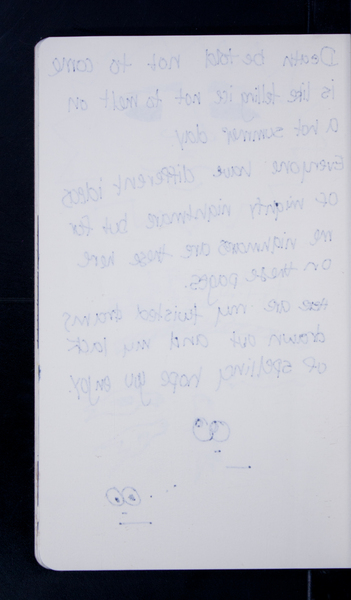 Death be told not to come
is like telling ice not to melt on
a hot summer day
Everyone have different ideas
of nightly nightmare but for
me nightmares are these here
on these pages.
here are my twisted
drawn out and my lack
of spelling hope you enjoy.